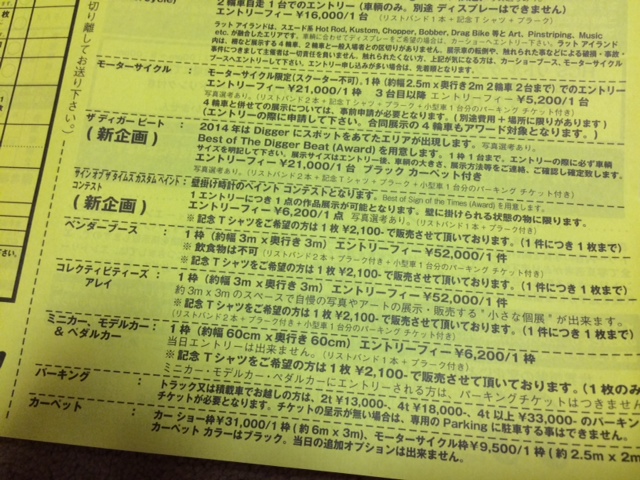 ２輪車自走１台でのエントリー（車輌のみ。別途 ディスプレーはできません）
エントリーフィー ¥16,000/１台 （リストバンド１本＋記念Ｔシャツ＋プラーク）
ラット アイランドは、スエード系 Hot Rod, Kustom, Chopper, Bobber, Drag Bike 等と Art、Pinstriping、Music
モーターサイクル：
モーターサイクル限定（スクーター不可）。１枠（約幅2.5m x 奥行き2m ２輪車 ２台まで）でのエントリー
エントリーフィー ¥21,000/１枠 ３台目以降 エントリーフィー ¥5,200/１台
４輪車と併せての展示については、事前申請が必要となります。（別途費用＋場所に限りがあります）
（エントリーの際に申請して下さい。合同展示の４輪車もアワード対象となります。）
ザ ディガー ビート：
（新企画）
2014年は Digger にスポットをあてたエリアが出現します。写真選考あり。
Best of The Digger Beat (Award) を用意します。１枠１台まで。エントリーの際に必ず車輌
サイズを明記して下さい。展示サイズはエントリー後、車輌の大きさ、展示方法等をご連絡、ご確認し確定致します。
エントリーフィー ¥21,000/１台 ブラック カーペット付き
サイン オブ ザ タイムス カスタム ペイント：
コンテスト
（新企画）
壁掛け時計のペイント コンテストとなります。Best of Sign of the Times (Award) を用意します。
１エントリーにつき１点の作品展示が可能となります。壁に掛けられる状態の物に限ります。
エントリーフィー ¥6,200/１点 写真選考あり。（リストバンド１本＋プラーク付き）
※ 記念Ｔシャツをご希望の方は１枚 ¥2,100-で販売させて頂いております。（１件につき１枚まで）
ベンダーブース：
１枠（約幅3m x 奥行き3m） エントリーフィー ¥52,000/１件
※ 飲食物は不可 （リストバンド２本＋プラーク付き＋小型車１台分のパーキング チケット付き）
※ 記念Ｔシャツをご希望の方は１枚 ¥2,100-で販売させて頂いております。（１件につき１枚まで）
コレクティビティーズ：
アレイ
１枠（約幅3m x 奥行き3m） エントリーフィー ¥52,000/１件
約3m x 3mのスペースで自慢の写真やアートの展示・販売する“小さな個展”が出来ます。
※ 記念Ｔシャツをご希望の方は１枚 ¥2,100-で販売させて頂いております。（１件につき１枚まで）
（リストバンド２本＋プラーク付き＋小型車１台分のパーキング チケット付き）
ミニカー モデルカー：
& ペダルカー
１枠（約幅60cm x 奥行き60cm） エントリーフィー ¥6,200/１枠
当日エントリーは出来ません。（リストバンド１本＋プラーク付き）
※ 記念Ｔシャツをご希望の方は１枚 ¥2,100-で販売させて頂いております。（１枚のみ
ミニカー・モデルカー・ペダルカーにエントリーされる方は、パーキングチケットはつきません
パーキング：
トラック又は積載車でお越しの方は、2t ¥13,000-、4t ¥18,000-、4t以上 ¥33,000- のパーキン
チケットが必要となります。チケットの呈示が無い場合は、専用の Parking に駐車する事はできません。
カーペット：
カー ショー枠 ¥31,000/１枠（約6m x 3m）、モーターサイクル枠 ¥9,500/１枠（約2.5m x 2m
カーペット カラーはブラック。当日の追加オプションは出来ません。
切り離してお送り下さい。）